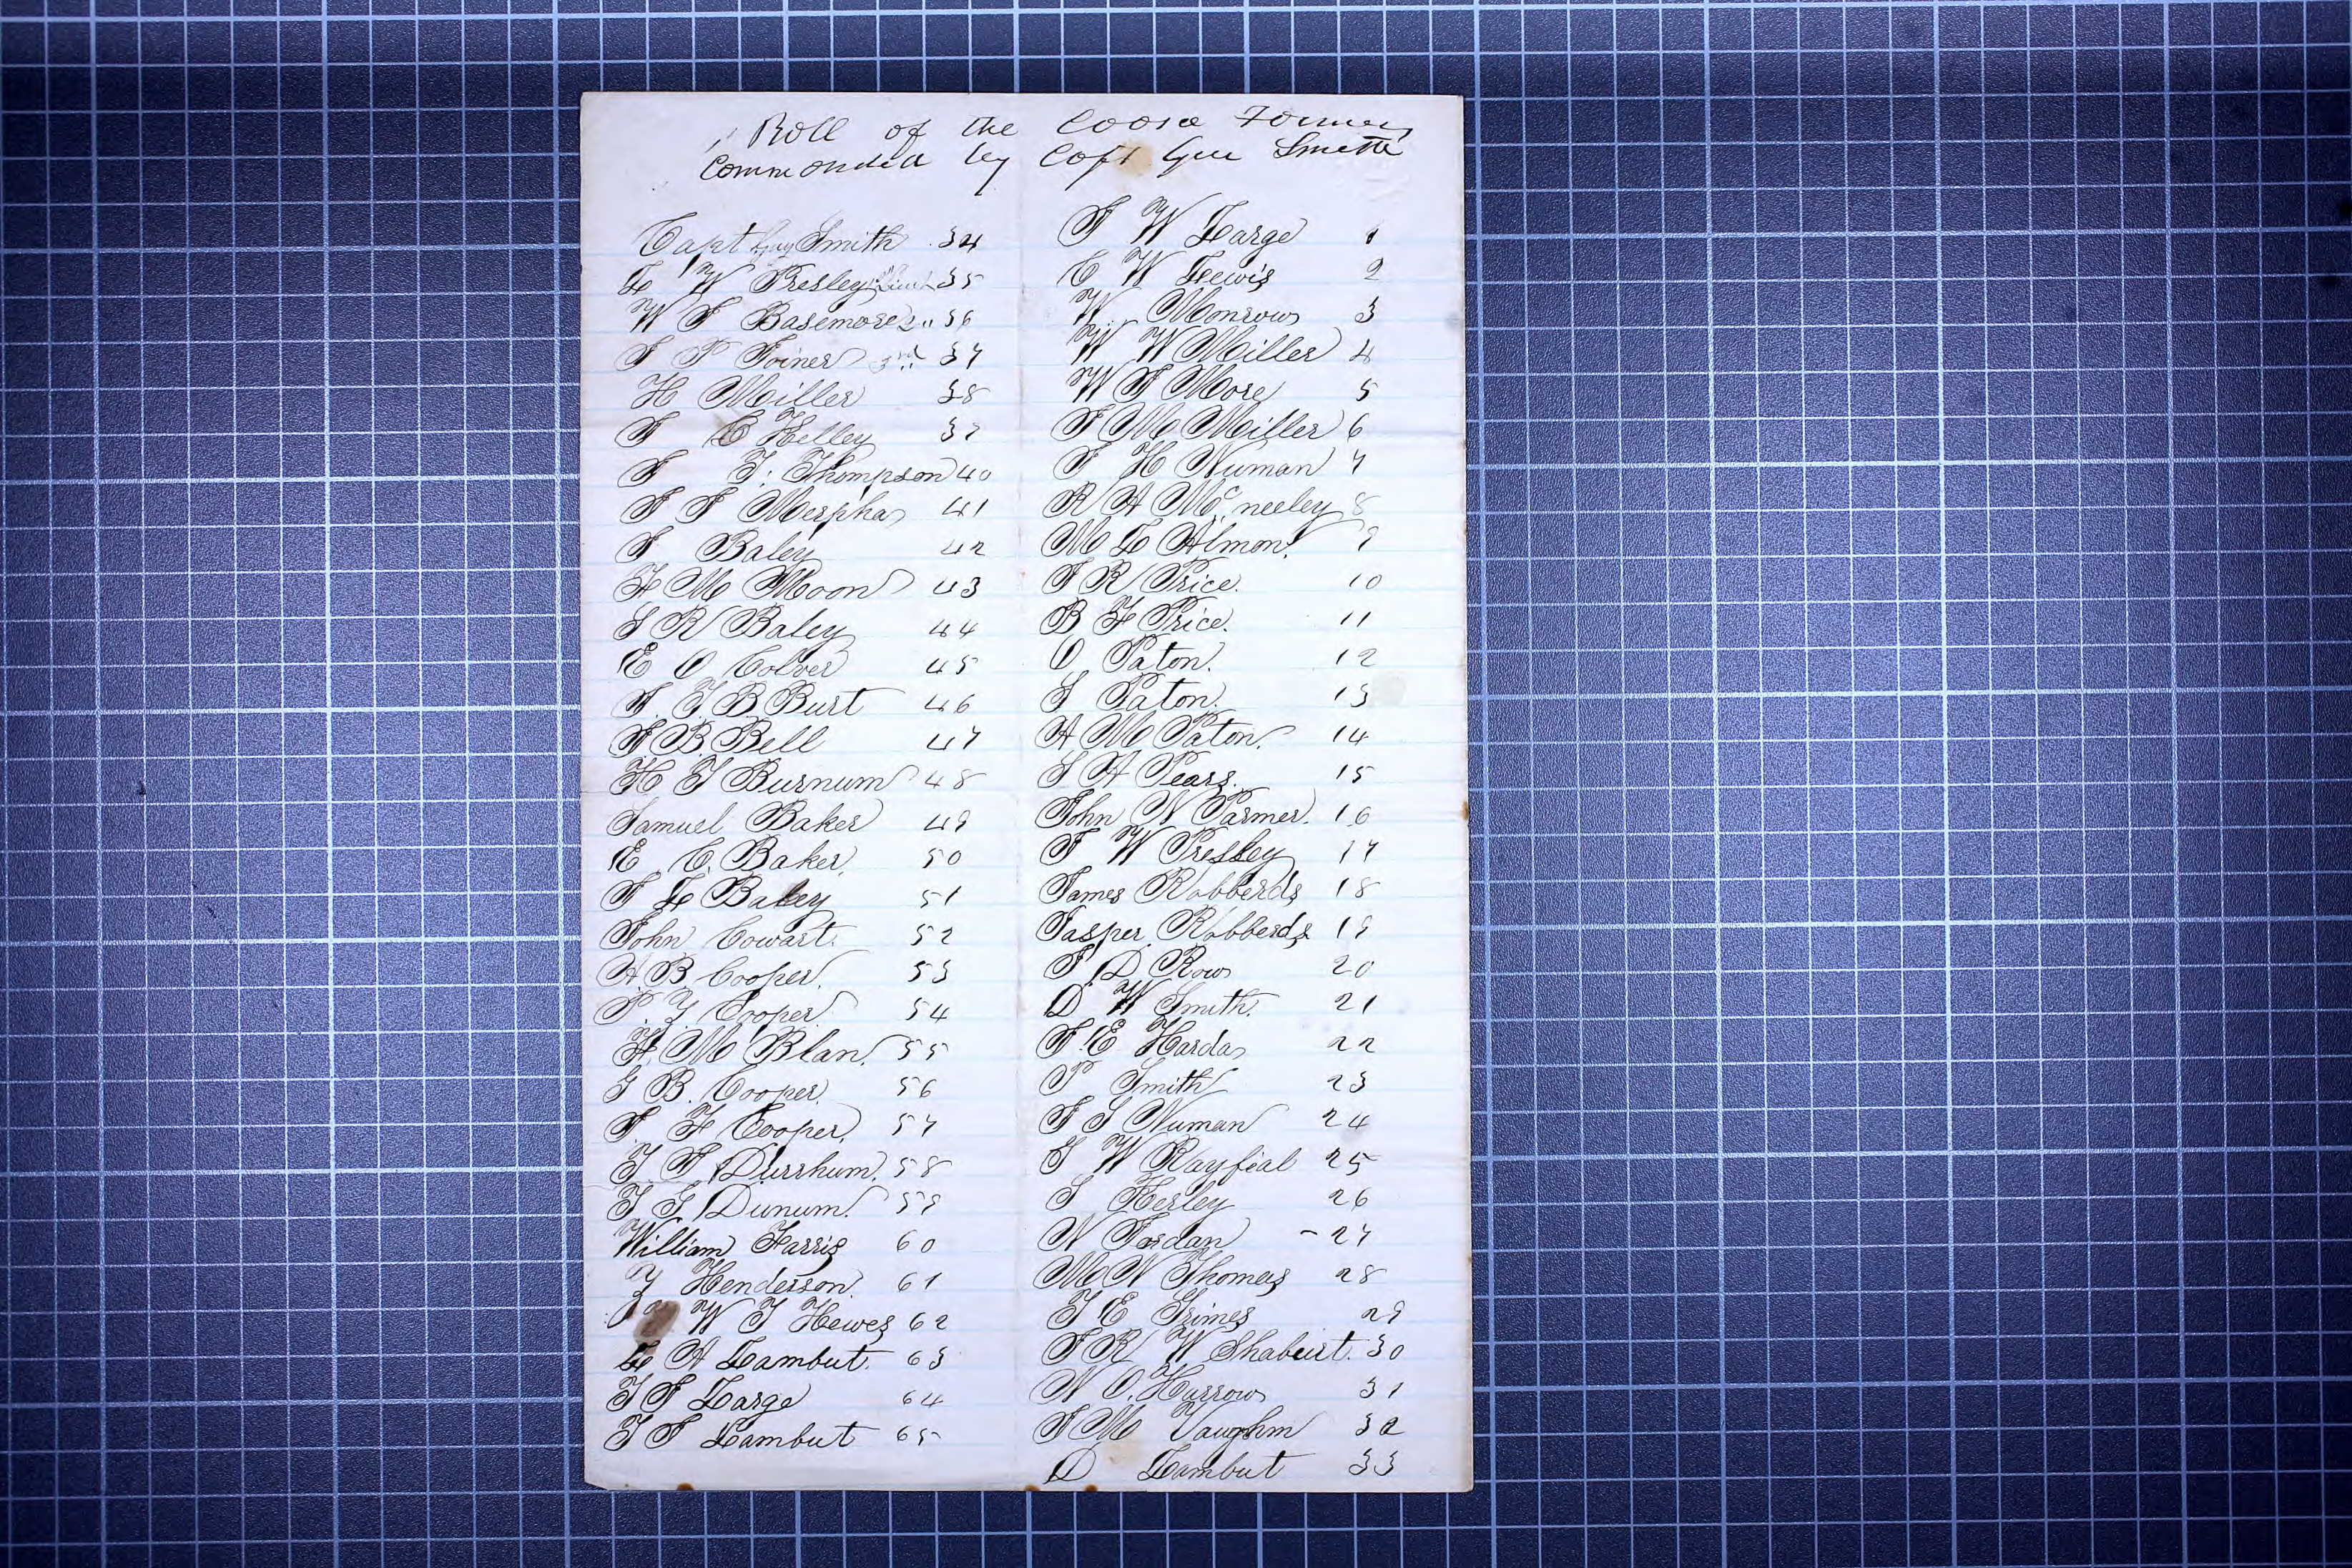 Roll of the Coosa Farmers
Commanded by Capt Guy Smith
Capt Guy Smith 34
L W Presley 1st Lieut 35
W J Basemore 2 " 36
J P Joiner 3rd " 37
H Miller 38
J C Kelley 39
J T. Thompson 40
J J Merpha 41
J Baley 42
F M Moon 43
S R Baley 44
E O Colver 45
J. T. B Burt 46
J B Bell 47
H T Burnum 48
Samuel Baker 49
E. C. Baker 50
J L Baley 51
John Cowart. 52
A. B. Cooper. 53
P. Y. Cooper 54
F. M Blan. 55
G B. Cooper. 56
J. F Cooper. 57
T. J. Durrhum. 58
T G Dunum. 59
William Farris 60
Z Henderson. 61
W T Hewes 62
L A Lambut. 63
T J Large 64
T J Lambut 65
J W Large 1
C W Lewis 2
W. Monrow 3
W W Miller 4
W J More 5
J M Miller 6
J H Numan 7
R A Mc neeley 8
M L Almon. 9
J R Price. 10
B F Price. 11
O Paton. 12
S Paton. 13
A M Paton. 14
S A Pears. 15
John N Parmer. 16
J W Presley 17
James Robberds 18
Jasper Robberds 19
J. D Row 20
D W Smith. 21
J. E Harda 22
P Smith 23
J S Numan 24
S W Rayfial 25
S Kerley 26
N Jordan - 27
M N Thomas 28
T E Grimes 29
J R W Shaburt. 30
N O. Harrow 31
J M Vaughm 32
D Lambut 33